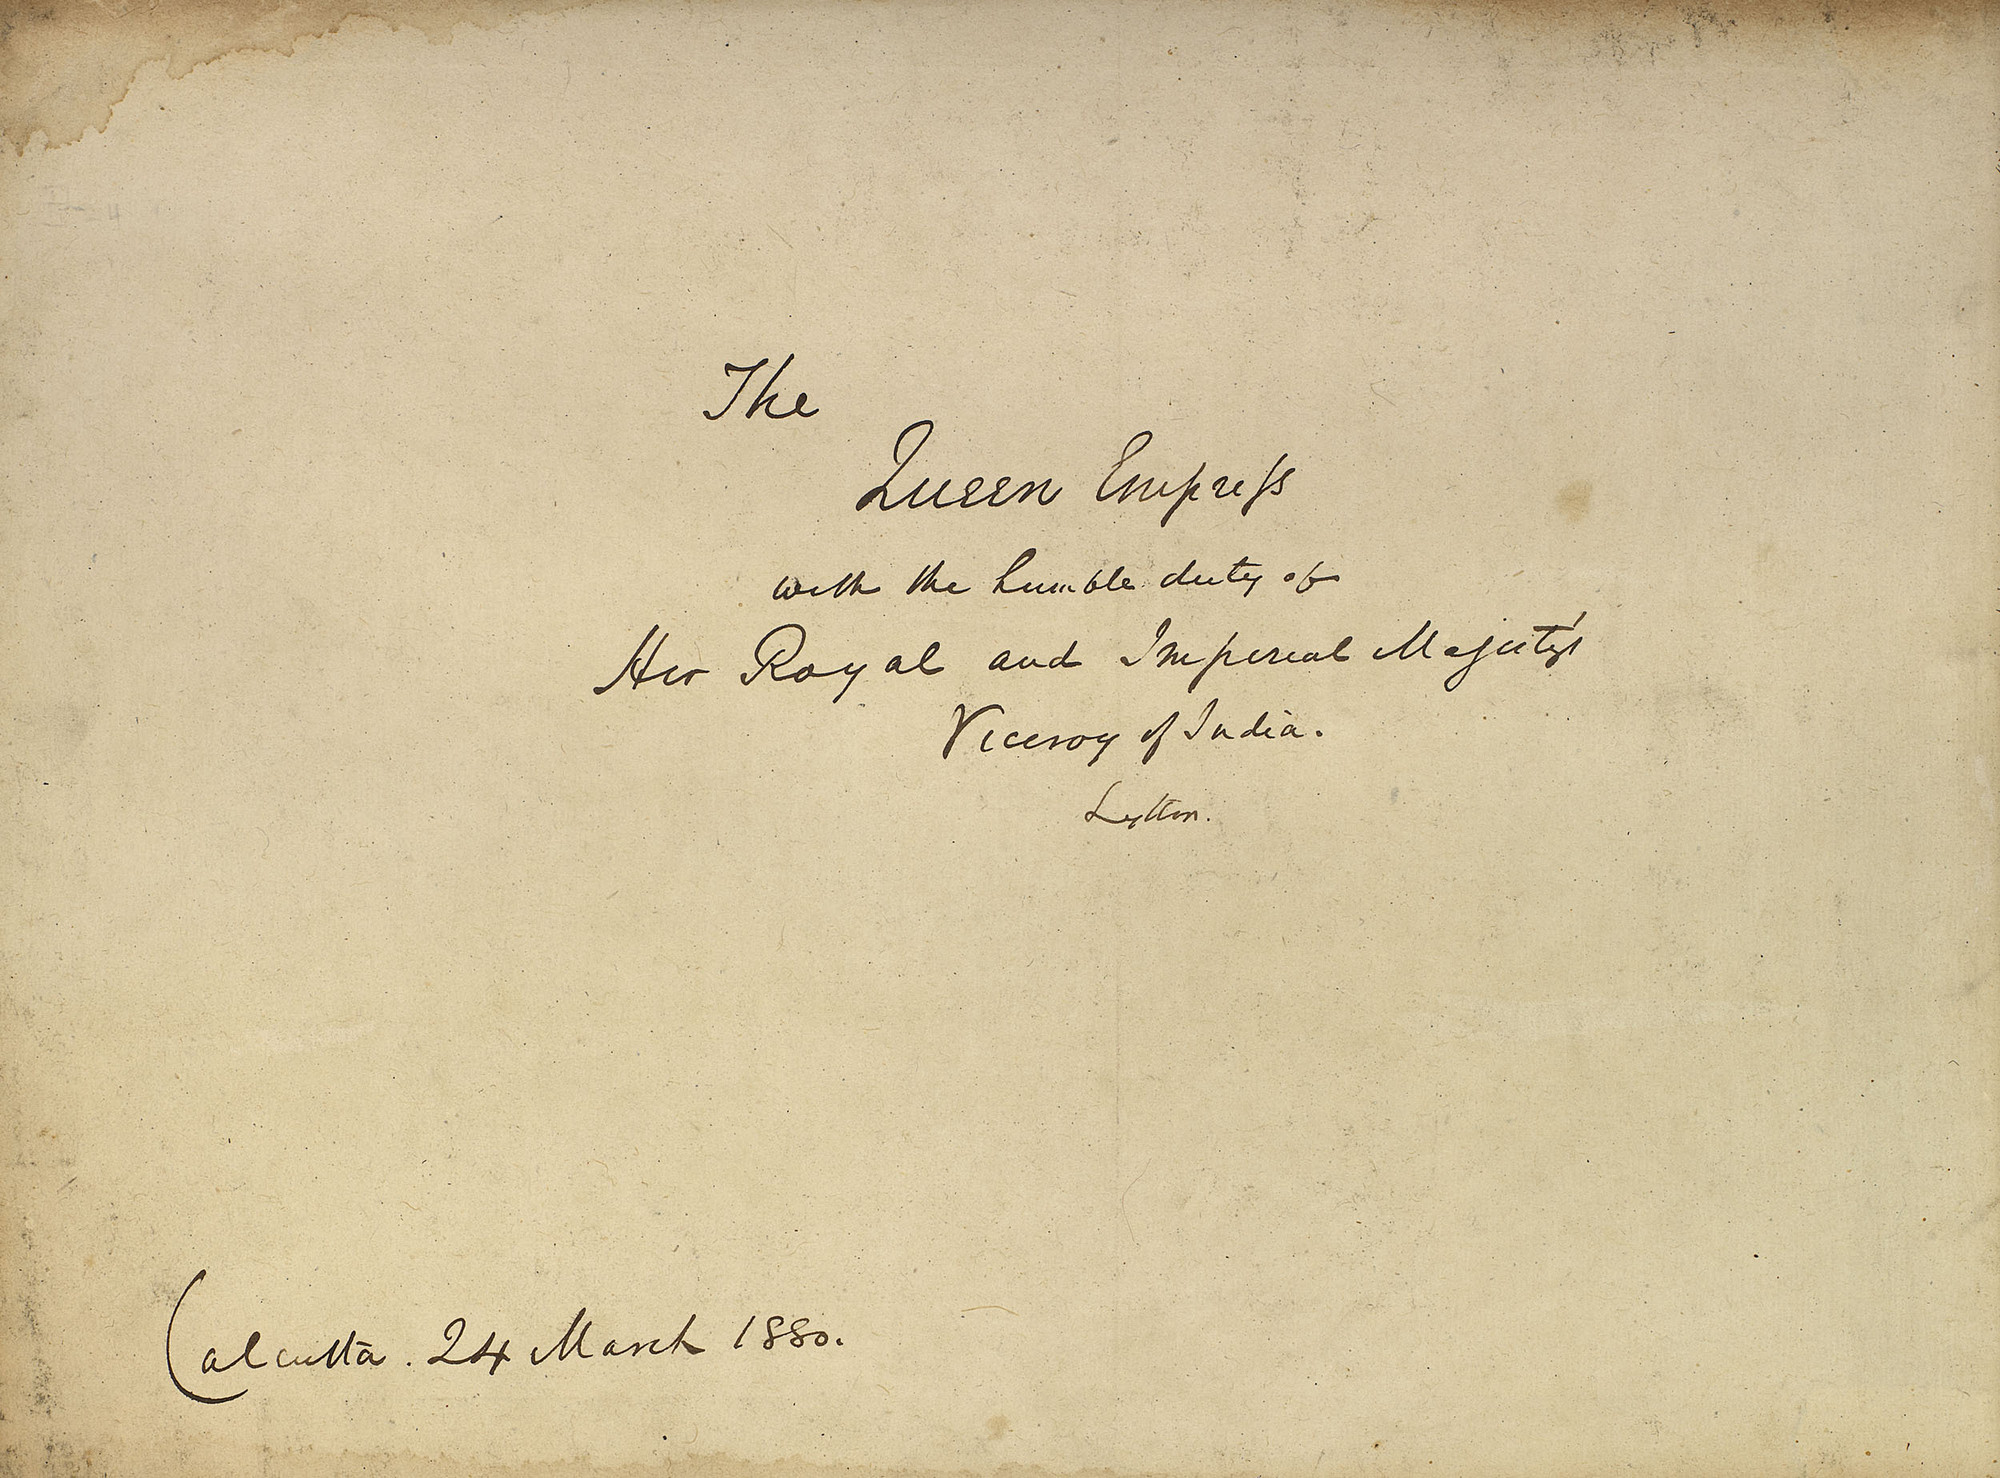 The
Queen Empreſs
with the humble duty of
Her Royal and Imperial Majesty's
Viceroy of India.
Lytton.
Calcutta. 24 March 1880.